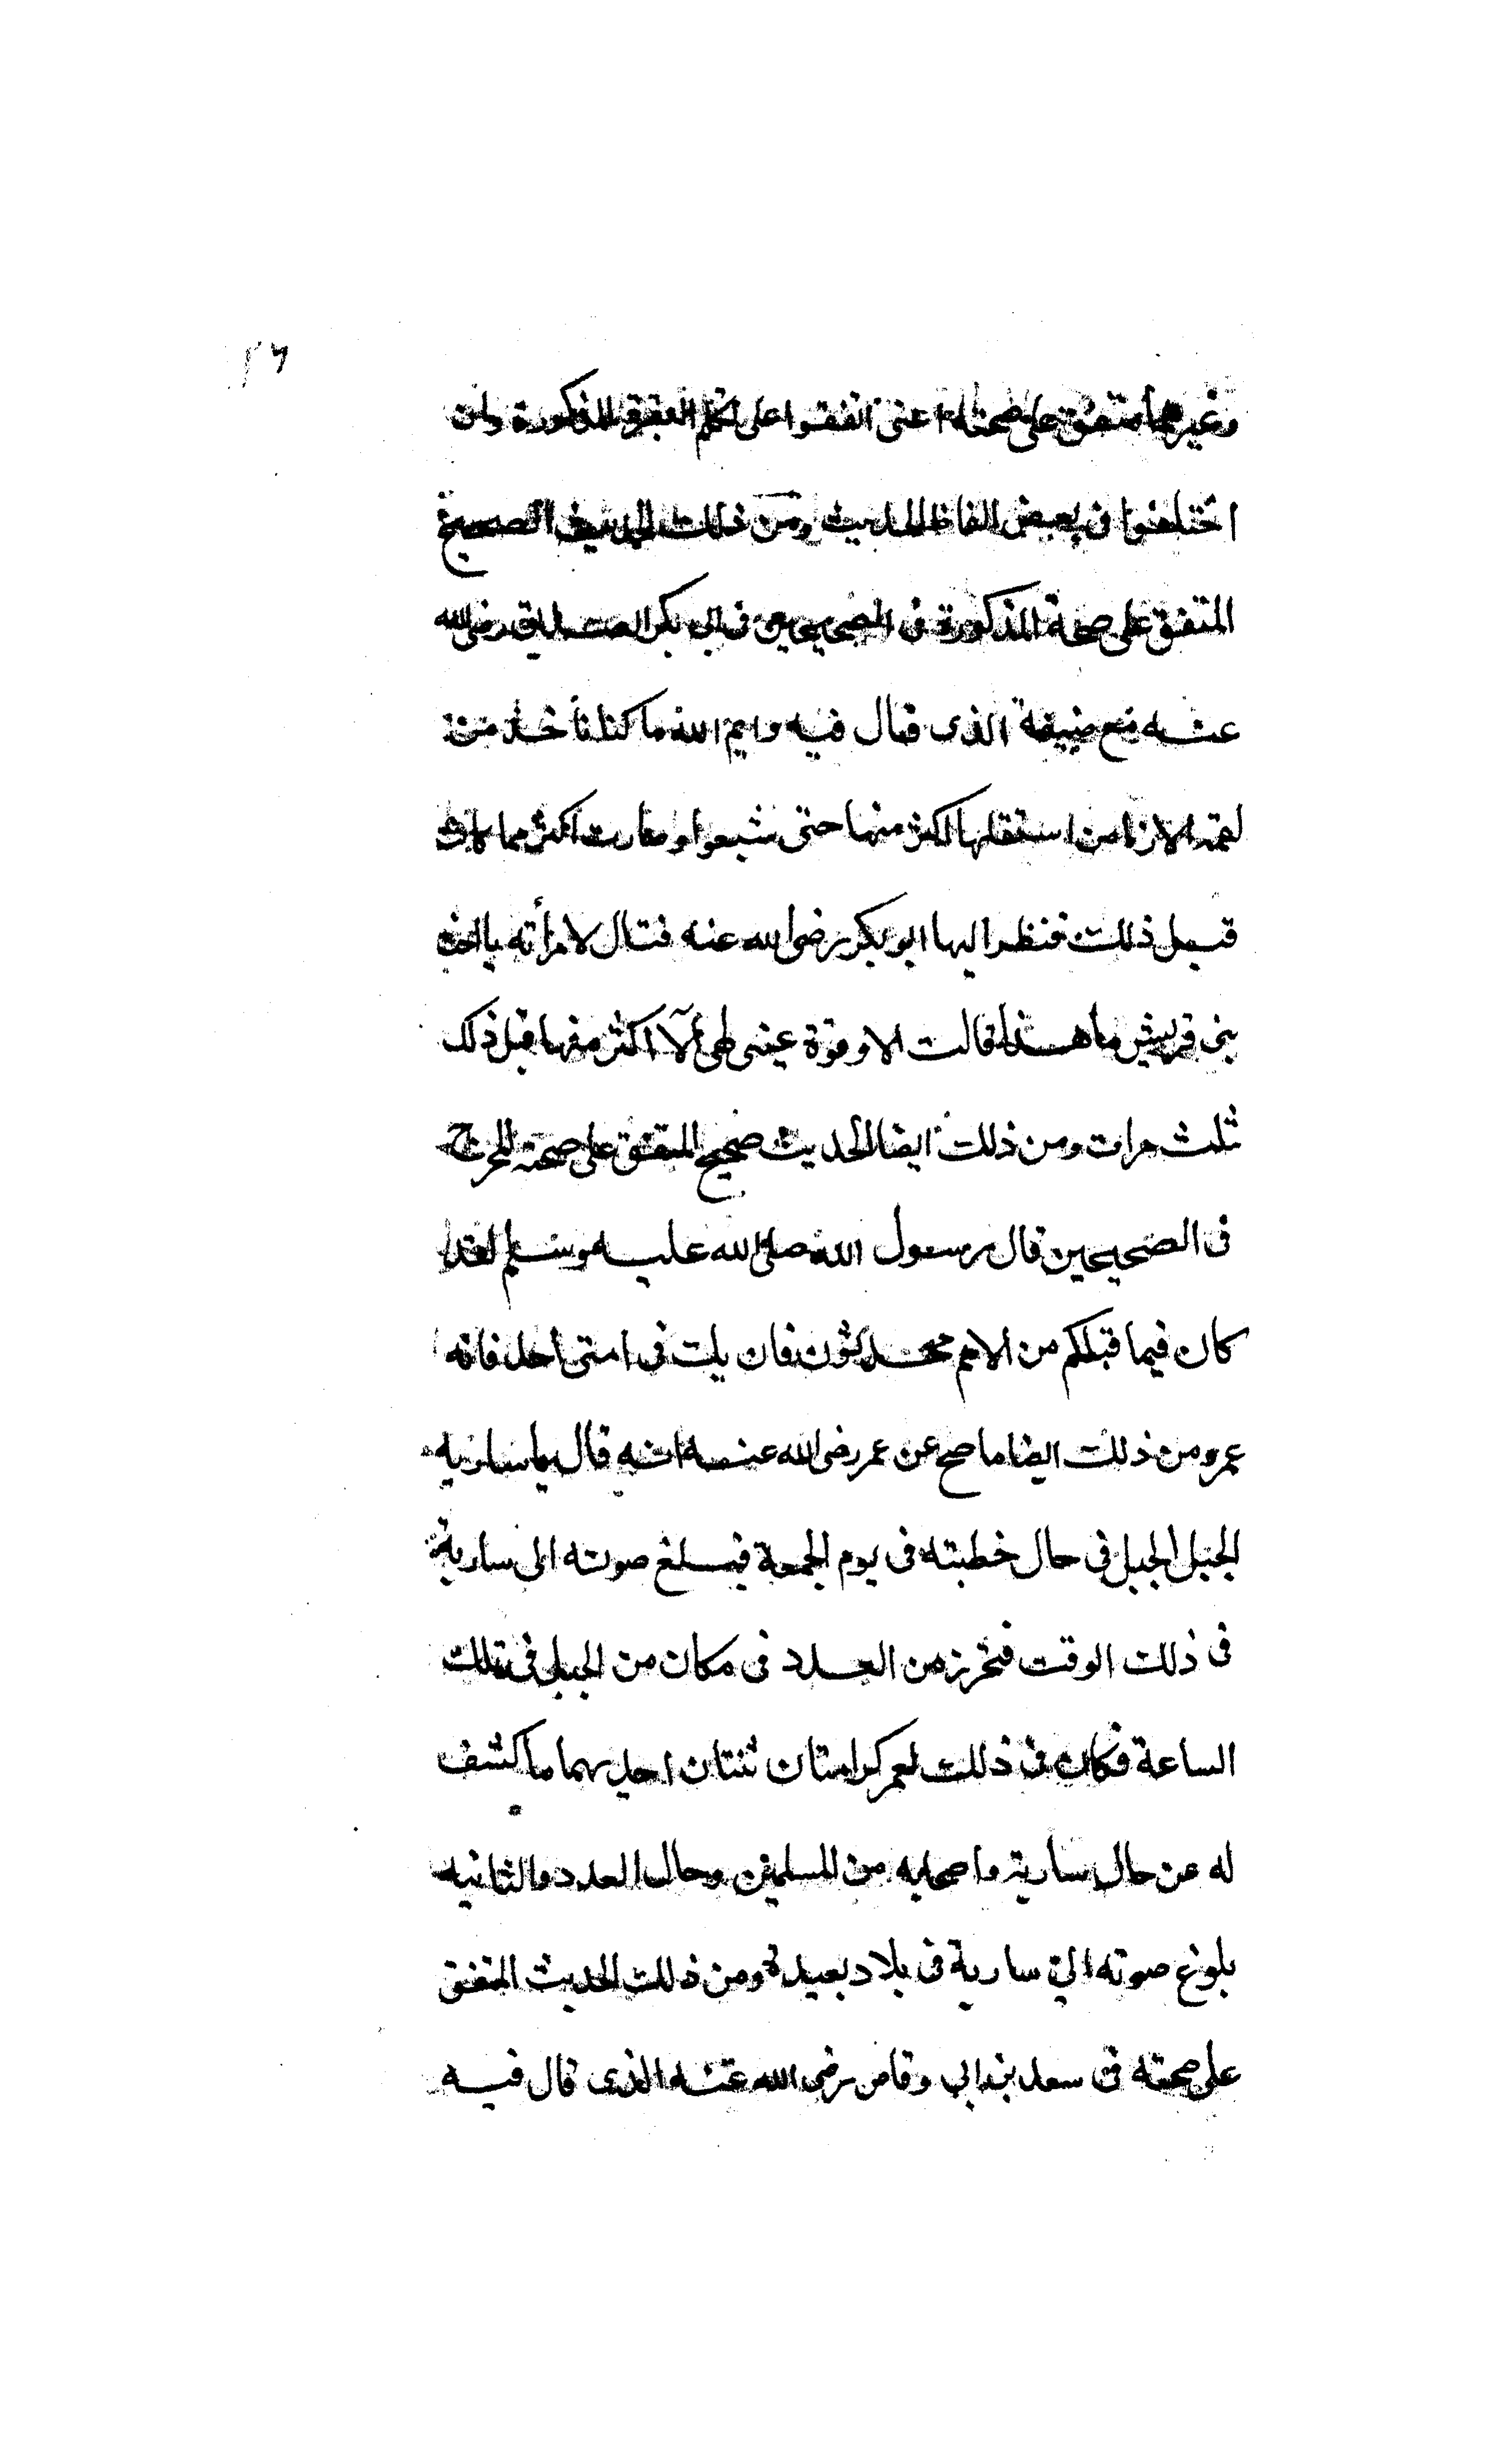 ٢٦
وغيرهما متفق على صحته اعنى اتفقوا على تكلم البقرة المذكورة وان
اختلفوا فى بعض الفاظ الحديث ومن ذلك الحديث الصحيح
المتفق على صحة المذكورة فى الصحيحين فى ابى بكر الصديق رضى الله
عنه مع ضيفه الذى قال فيه وايم الله ما كنا نأخذ من
لقمة الا ربا من اسفلها اكثر منها حتى شبعوا وصارت اكثر مما كانت
قبل ذلك فنظر اليها ابو بكر رضى الله عنه فقال لامرأته يا اخت
بنى فريش ما هذا قالت لا وقرة عينى لهى الآ اكثر منها قبل ذلك
ثلث مرات ومن ذلك ايضا الحديث صحيح المتفق على صحة المخرج
فى الصحيحين قال رسول الله صلى الله عليه وسلم لقد
كان فيما قبلكم من الامم محدثون فان يك فى امتى احد فانه
عمر ومن ذلك ايضا ما صح عن عمر رضى الله عنه انه قال يا ساريه
الجبل الجبل فى حال خطبته فى يوم الجمعة فبلغ صوته الى سارية
فى ذلك الوقت فتحرز من العدد فى مكان من الجبل فى تلك
الساعة فكان فى ذلك لعمر كرامتان ثنتان احديهما ما كشف
له عن حال سارية واصحابه من المسلمين وحال العدد والثانيه
بلوغ صوته الى سارية فى بلاد بعيدة ومن ذلك الحديث المتفق
على صحته فى سعد بن ابى وقاص رضى الله عنه الذى قال فيه